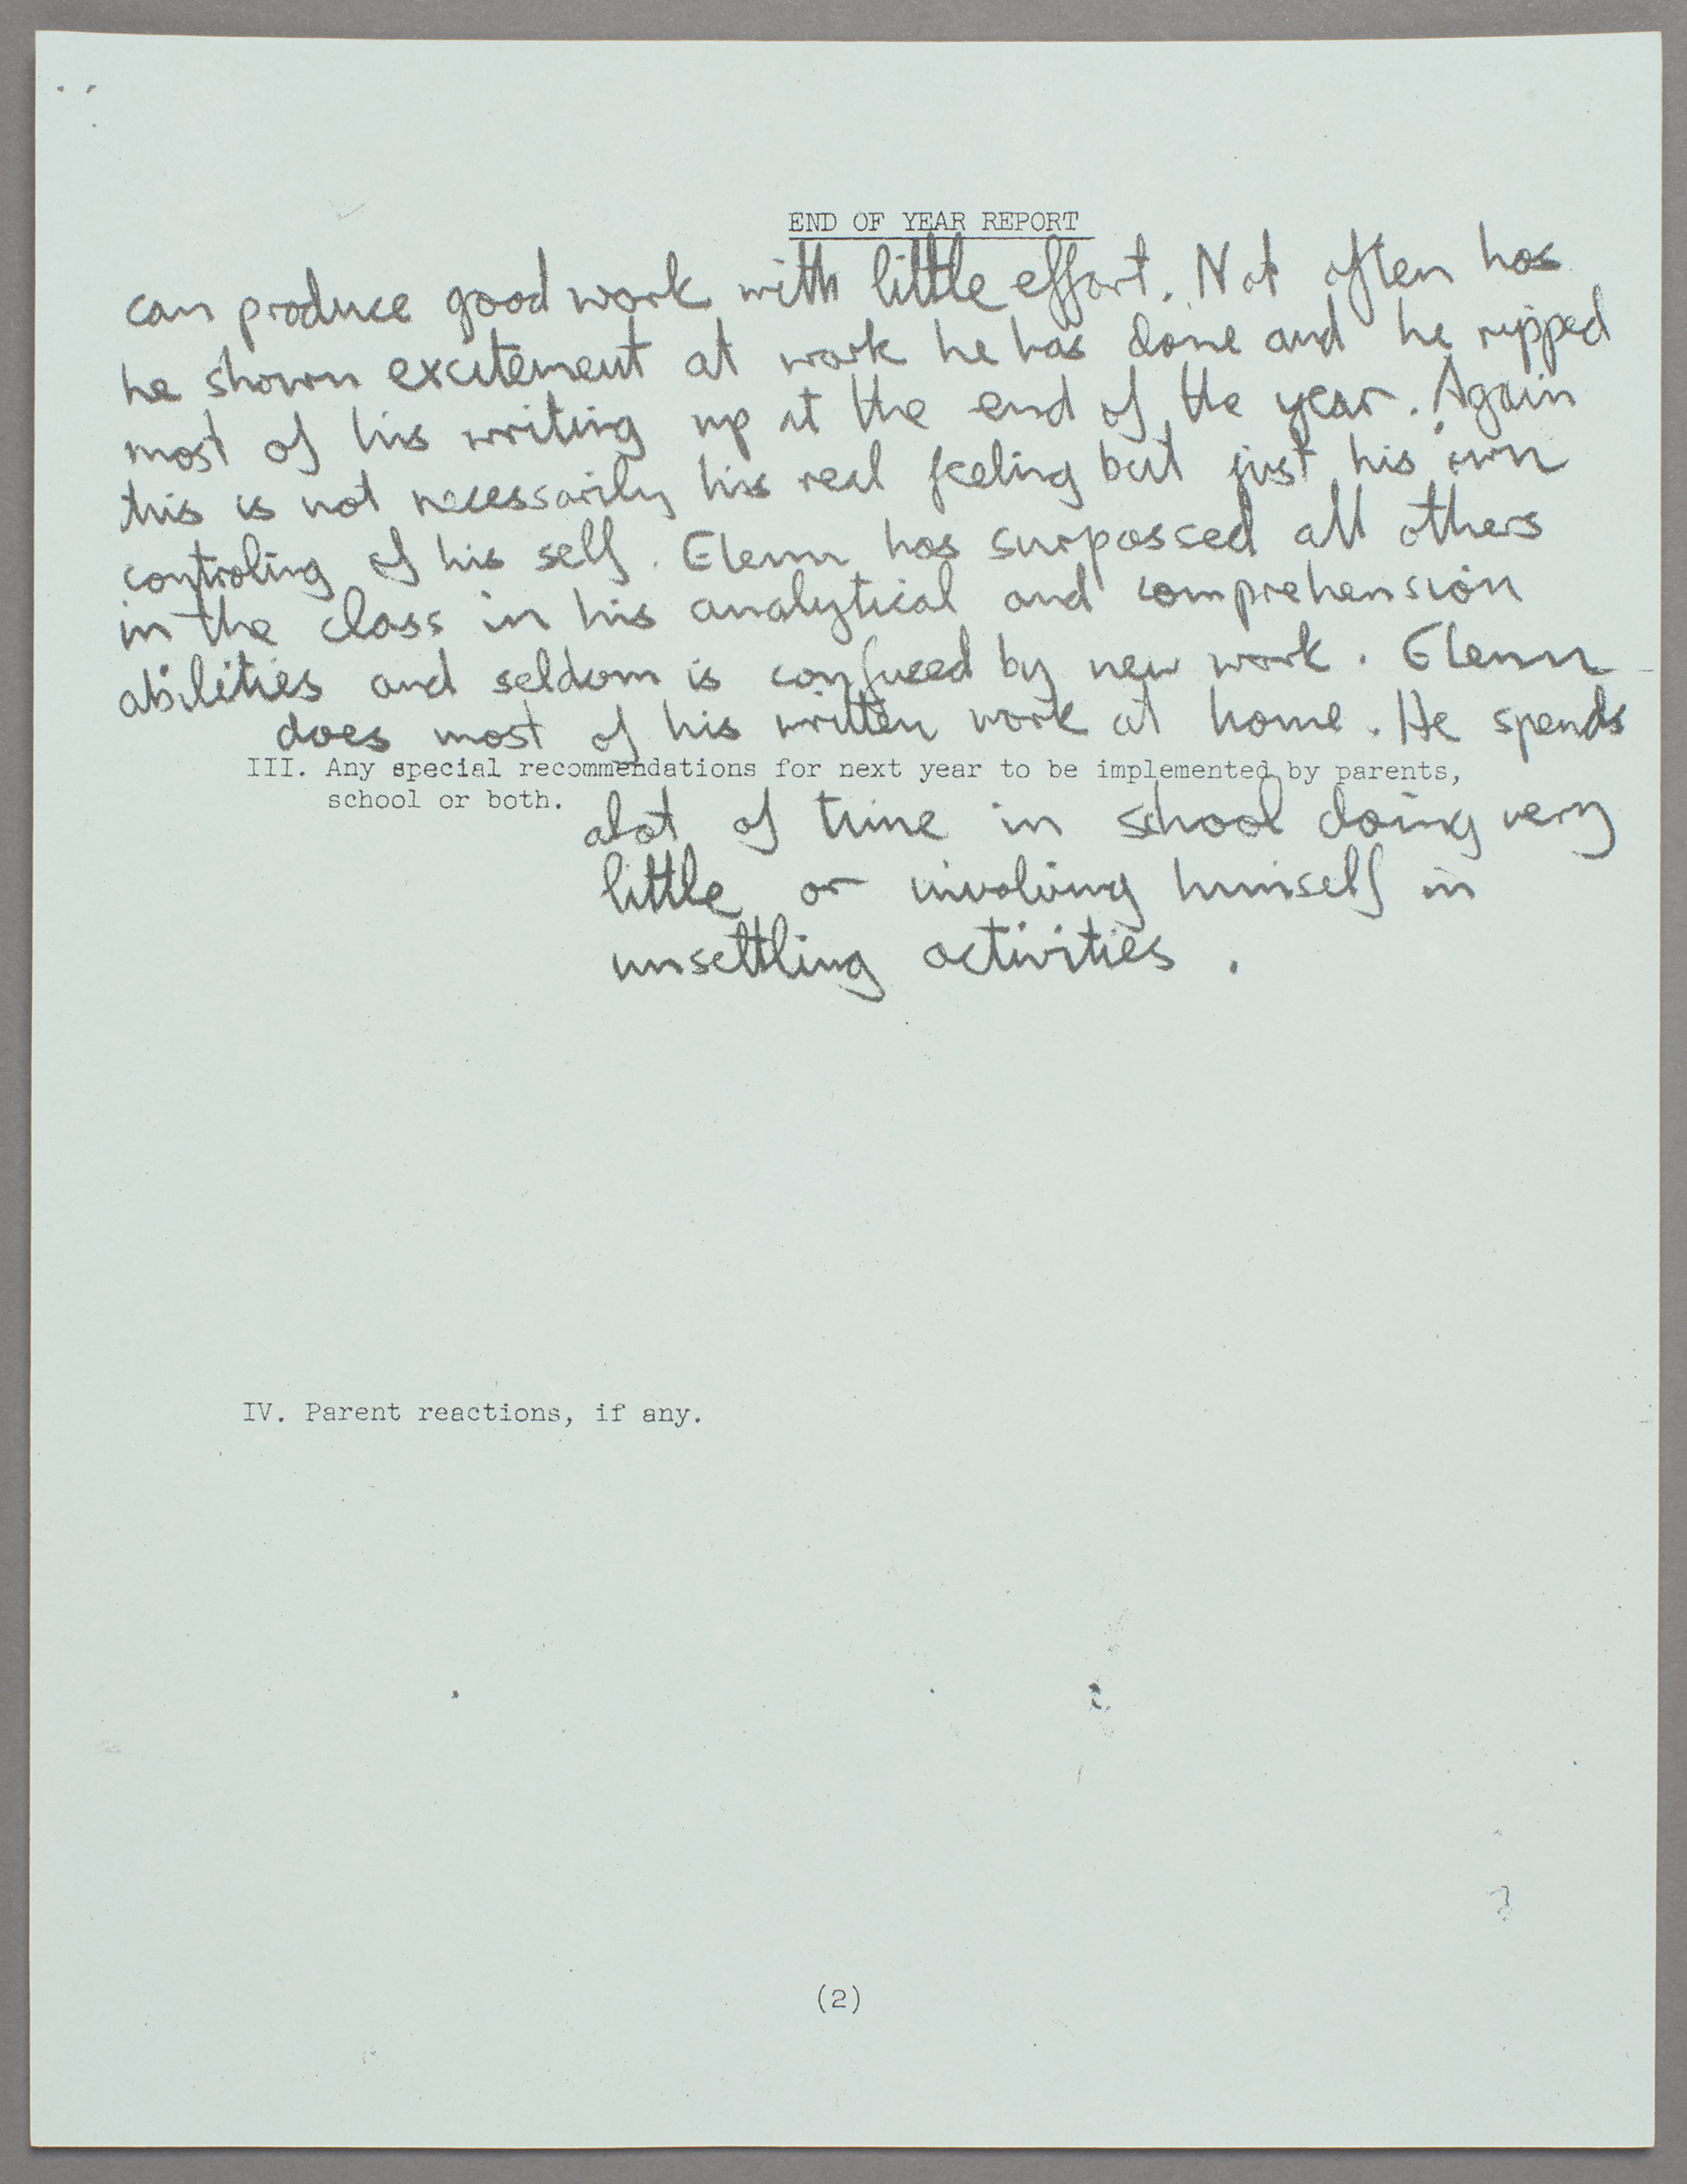 END OF YEAR REPORT
can produce good work with little effort. Not often has
he shown excitement at work he has done and he ripped
most of his writing up at the end of the year. Again
this is not necessarily his real feeling but just his own
controling of his self. Glenn has surpassed all others
in the class in his analytical and comprehension
abilities and seldom is confused by new work. Glenn
does most of his written work at home. He spends
III. Any special recommendations for next year to be implemented by parents,
school or both.
alot of time in school doing very
little or involving himself in
unsettling activities.
IV. Parent reactions, if any.
(2)